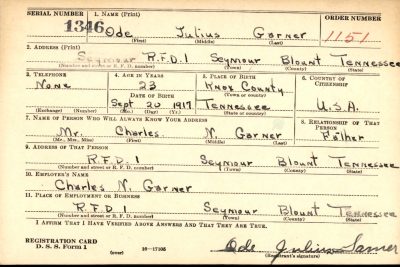 SERIAL NUMBER 1. NAME (Print) ORDER NUMBER
1346 Ode Julius Garner 1151
(First) (Middle) (Last)
2. ADDRESS (Print)
Seymour R.F.D.1 Seymour Blount Tennessee
(Number and street or R. F. D. number) (Town) (County) (State)
3. TELEPHONE 4. AGE IN YEARS 5. PLACE OF BIRTH 6. COUNTRY OF CITIZENSHIP
None 23 Knox County
DATE OF BIRTH (Town or county)
Sept 20 1917 Tennessee U.S.A.
(Exchange) (Number) (Mo.) (Day) (Yr.) (State or country)
7. NAME OF PERSON WHO WILL ALWAYS KNOW YOUR ADDRESS 8. RELATIONSHIP OF THAT PERSON
Mr. Charles N. Garner Father
(Mr., Mrs., Miss) (First) (Middle) (Last)
9. ADDRESS OF THAT PERSON
R.F.D. 1 Seymour Blount Tennessee
(Number and street or R. F. D. number) (Town) (County) (State)
10. EMPLOYER'S NAME
Charles N. Garner
11. PLACE OF EMPLOYMENT OR BUSINESS
R.F.D. 1 Seymour Blount Tennessee
(Number and street or R. F. D. number) (Town) (County) (State)
I AFFIRM THAT I HAVE VERIFIED ABOVE ANSWERS AND THAT THEY ARE TRUE.
REGISTRATION CARD
D. S. S. Form 1 (over) 16—17105 Ode Julius Garner
(Registrant's signature)